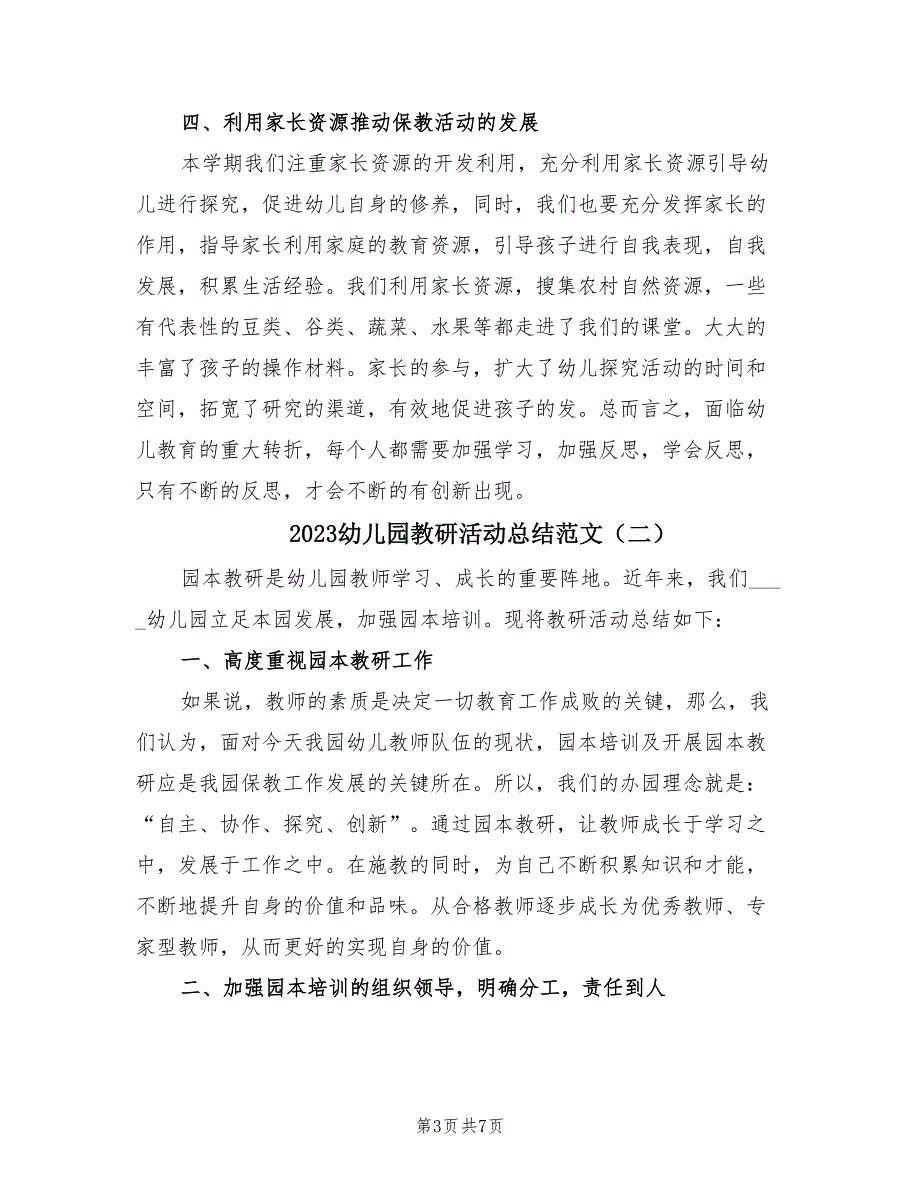 四、利用家长资源推动保教活动的发展
本学期我们注重家长资源的开发利用，充分利用家长资源引导幼
儿进行探究，促进幼儿自身的修养，同时，我们也要充分发挥家长的
作用，指导家长利用家庭的教育资源，引导孩子进行自我表现，自我
发展，积累生活经验。我们利用家长资源，搜集农村自然资源，一些
有代表性的豆类、谷类、蔬菜、水果等都走进了我们的课堂。大大的
丰富了孩子的操作材料。家长的参与，扩大了幼儿探究活动的时间和
空间，拓宽了研究的渠道，有效地促进孩子的发。总而言之，面临幼
儿教育的重大转折，每个人都需要加强学习，加强反思，学会反思，
只有不断的反思，才会不断的有创新出现。
2023幼儿园教研活动总结范文（二）
园本教研是幼儿园教师学习、成长的重要阵地。近年来，我们___
_幼儿园立足本园发展，加强园本培训。现将教研活动总结如下：
一、高度重视园本教研工作
如果说，教师的素质是决定一切教育工作成败的关键，那么，我
们认为，面对今天我园幼儿教师队伍的现状，园本培训及开展园本教
研应是我园保教工作发展的关键所在。所以，我们的办园理念就是：
“自主、协作、探究、创新”。通过园本教研，让教师成长于学习之
中，发展于工作之中。在施教的同时，为自己不断积累知识和才能，
不断地提升自身的价值和品味。从合格教师逐步成长为优秀教师、专
家型教师，从而更好的实现自身的价值。
二、加强园本培训的组织领导，明确分工，责任到人
第3页共7页